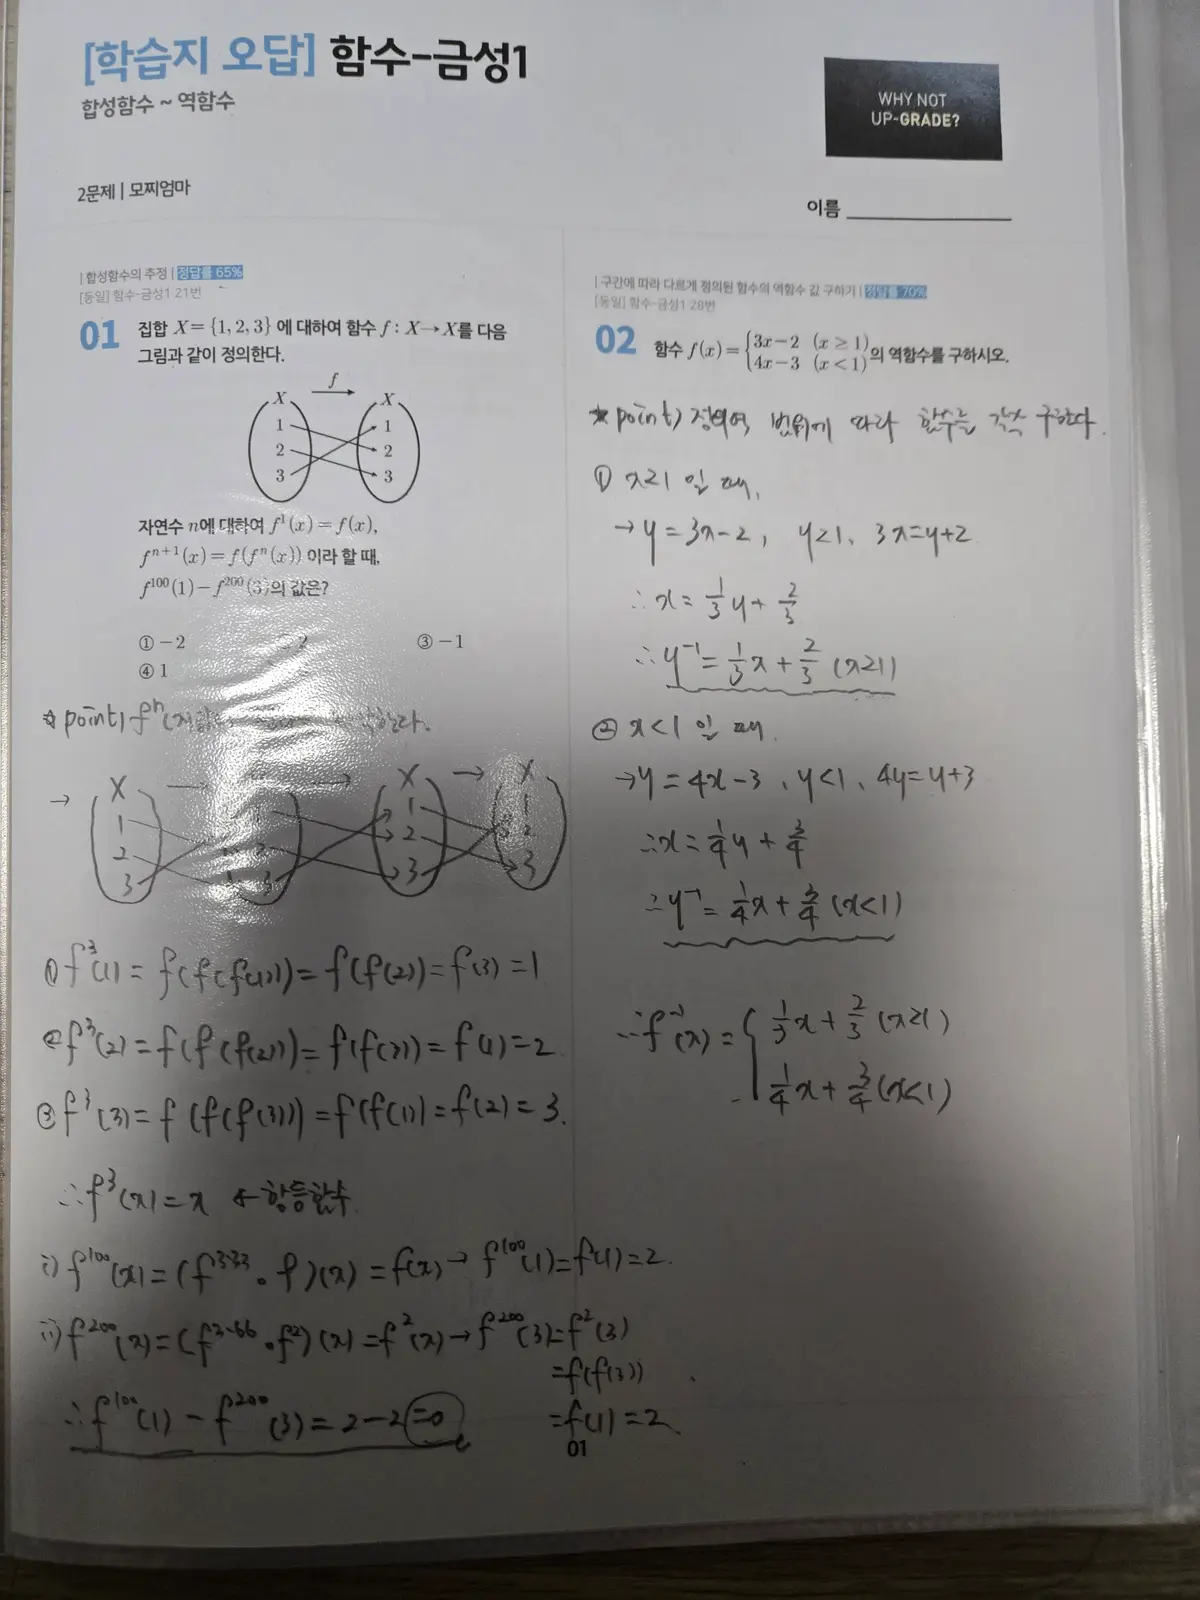 [학습지 오답] 함수-금성1
합성함수 ~ 역함수
WHY NOT
UP-GRADE?
2문제 | 모찌엄마
이름
| 합성함수의 추정 | 정답률 65%
[동일] 함수-금성1 21번
01 집합 X = {1, 2, 3} 에 대하여 함수 f : X→X를 다음
그림과 같이 정의한다.
f
X X
1 1
2 2
3 3
자연수 n에 대하여 f¹(x) = f(x),
fⁿ⁺¹(x) = f(fⁿ(x)) 이라 할 때,
f¹⁰⁰(1) − f²⁰⁰(3)의 값은?
① −2 2 ③ −1
④ 1
* point) fⁿ
→ X → → X → X
1 1 1 1
2 2 2 2
3 3 3 3
① f³(1) = f(f(f(1))) = f(f(2)) = f(3) = 1
② f³(2) = f(f(f(2))) = f(f(3)) = f(1) = 2
③ f³(3) = f(f(f(3))) = f(f(1)) = f(2) = 3.
∴ f³(x) = x ← 항등함수
i) f¹⁰⁰(x) = (f³·³³ ∘ f)(x) = f(x) → f¹⁰⁰(1) = f(1) = 2.
ii) f²⁰⁰(x) = (f³·⁶⁶ ∘ f²)(x) = f²(x) → f²⁰⁰(3) = f²(3)
= f(f(3))
= f(1) = 2
∴ f¹⁰⁰(1) − f²⁰⁰(3) = 2 − 2 = 0
| 구간에 따라 다르게 정의된 함수의 역함수 값 구하기 | 정답률 70%
[동일] 함수-금성1 28번
02 함수 f(x) = { 3x − 2 (x ≥ 1)
4x − 3 (x < 1) 의 역함수를 구하시오.
* point) 정의역 범위에 따라 함수를 각각 구한다.
① x≥1 일 때,
→ y = 3x−2, y≥1, 3x=y+2
∴ x = 1/3 y + 2/3
∴ y⁻¹ = 1/3 x + 2/3 (x≥1)
② x<1 일 때.
→ y = 4x−3, y<1, 4y=y+3
∴ x = 1/4 y + 3/4
∴ y⁻¹ = 1/4 x + 3/4 (x<1)
∴ f⁻¹(x) = { 1/3 x + 2/3 (x≥1)
1/4 x + 3/4 (x<1)
01